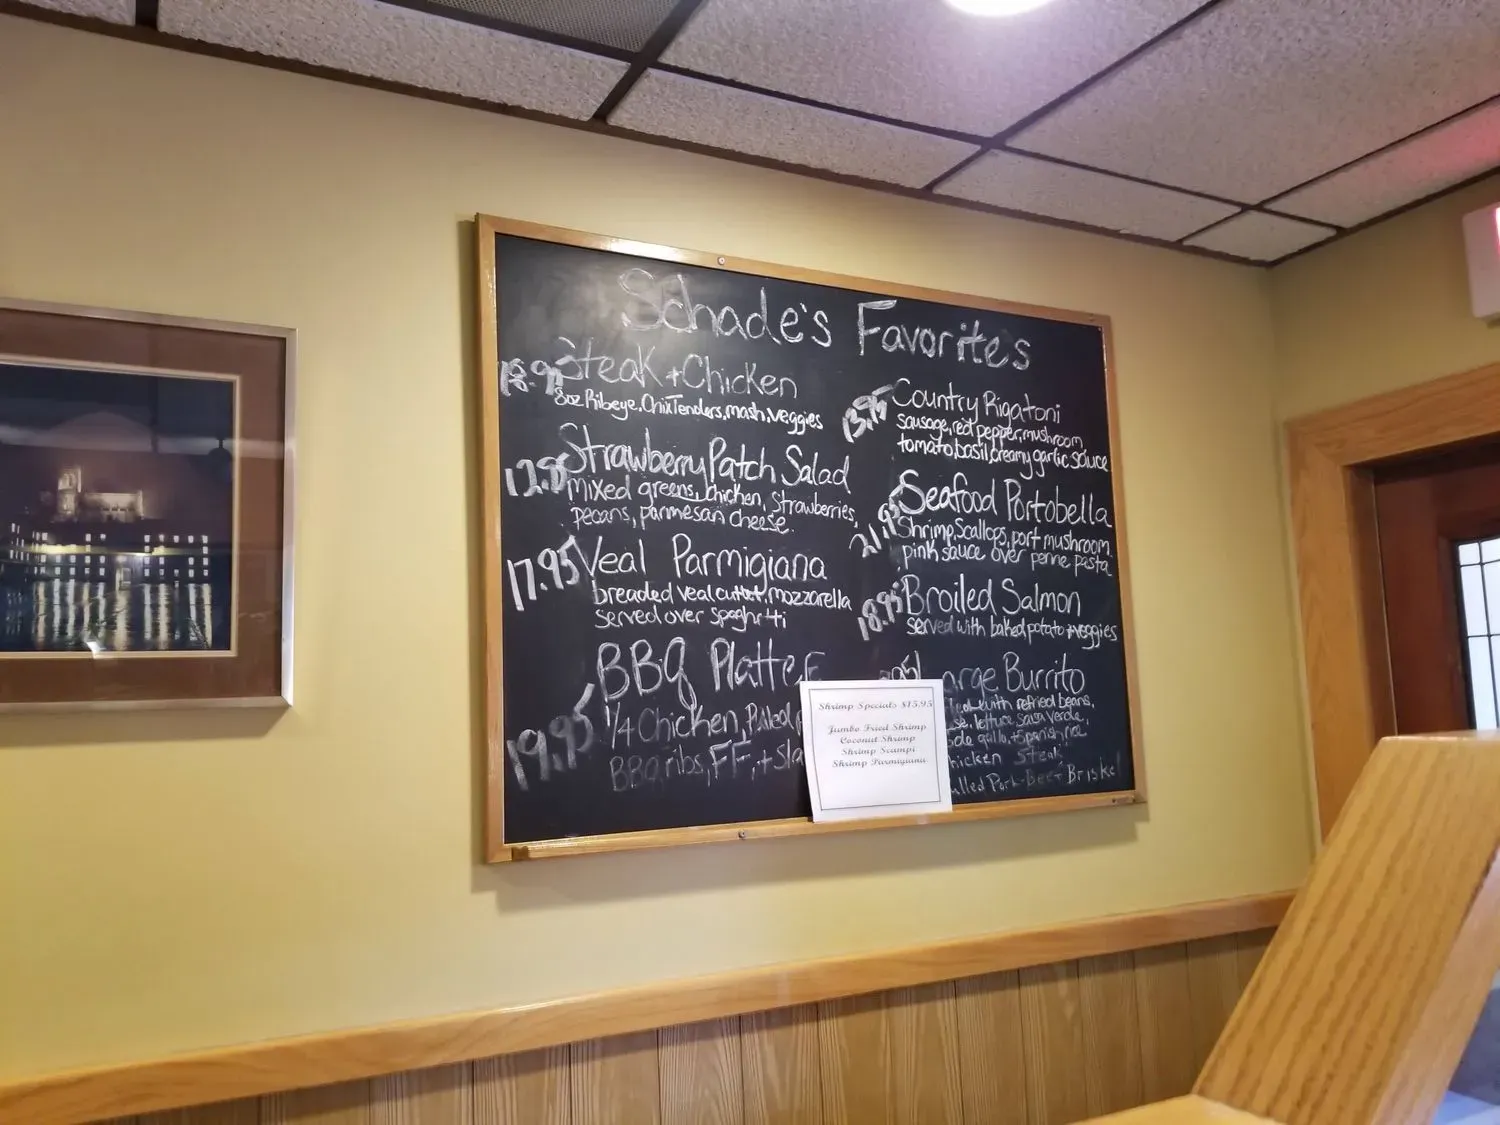 Schade's Favorites
18.95 Steak + Chicken
8oz Ribeye, Chix Tenders, mash, veggies
12.95 Strawberry Patch Salad
mixed greens, chicken, strawberries,
pecans, parmesan cheese.
17.95 Veal Parmigiana
breaded veal cutlet, mozzarella
served over spaghetti
BBQ Platter
19.95 1/4 Chicken, Pulled
BBQ ribs, FF, + Sla
13.95 Country Rigatoni
sausage, red pepper, mushroom
tomato, basil, creamy garlic sauce
21.95 Seafood Portobella
Shrimp, Scallops, port mushroom
pink sauce over penne pasta
18.95 Broiled Salmon
served with baked potato + veggies
Burrito
with refried beans,
lettuce, salsa verde,
gallo, + Spanish rice
Steak
Pork - Beef Brisket
Shrimp Specials $15.95
Jumbo Fried Shrimp
Coconut Shrimp
Shrimp Scampi
Shrimp Parmigiana